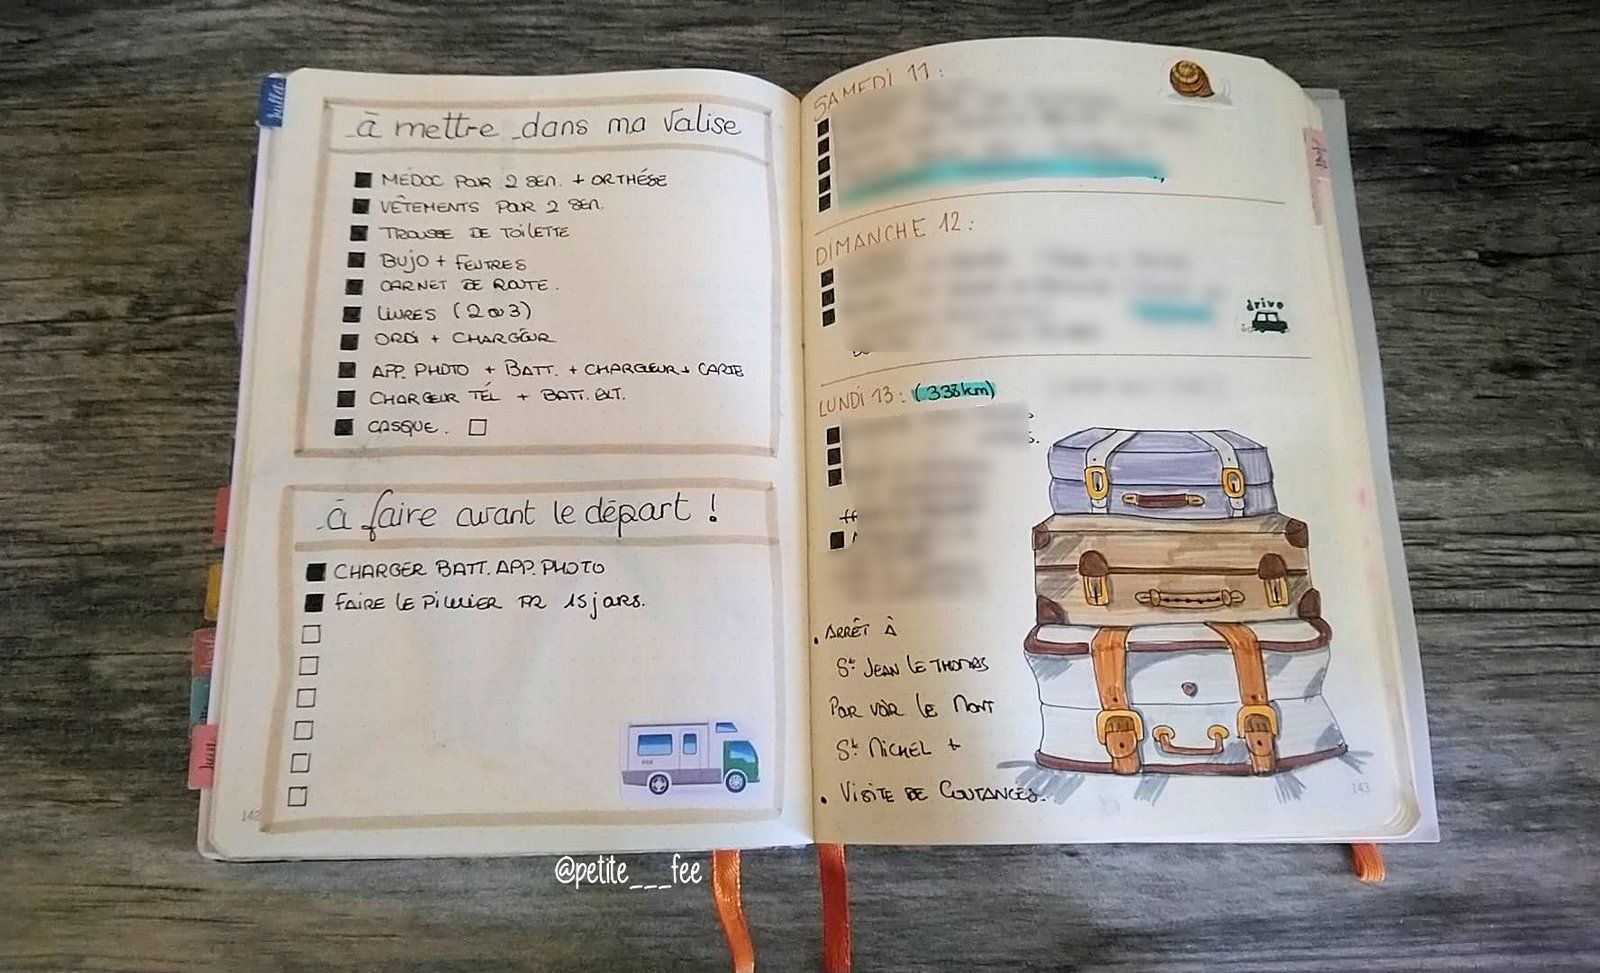 à mettre dans ma valise
MÉDOC POUR 2 SEM. + ORTHÈSE
VÊTEMENTS POUR 2 SEM.
TROUSSE DE TOILETTE
BUJO + FEUTRES
CARNET DE ROUTE.
LIVRES (2 OU 3)
ORDI + CHARGEUR
APP. PHOTO + BATT. + CHARGEUR + CARTE
CHARGEUR TÉL + BATT. EXT.
CASQUE.
à faire avant le départ !
CHARGER BATT. APP. PHOTO
FAIRE LE PILULIER PR 15 jours.
142
SAMEDI 11 :
DIMANCHE 12 :
drive
LUNDI 13 : (338km)
. ARRÊT À
St JEAN LE THOMAS
POUR VOIR LE MONT
St MICHEL +
. VISITE DE COUTANCES.
143
@petite___fee